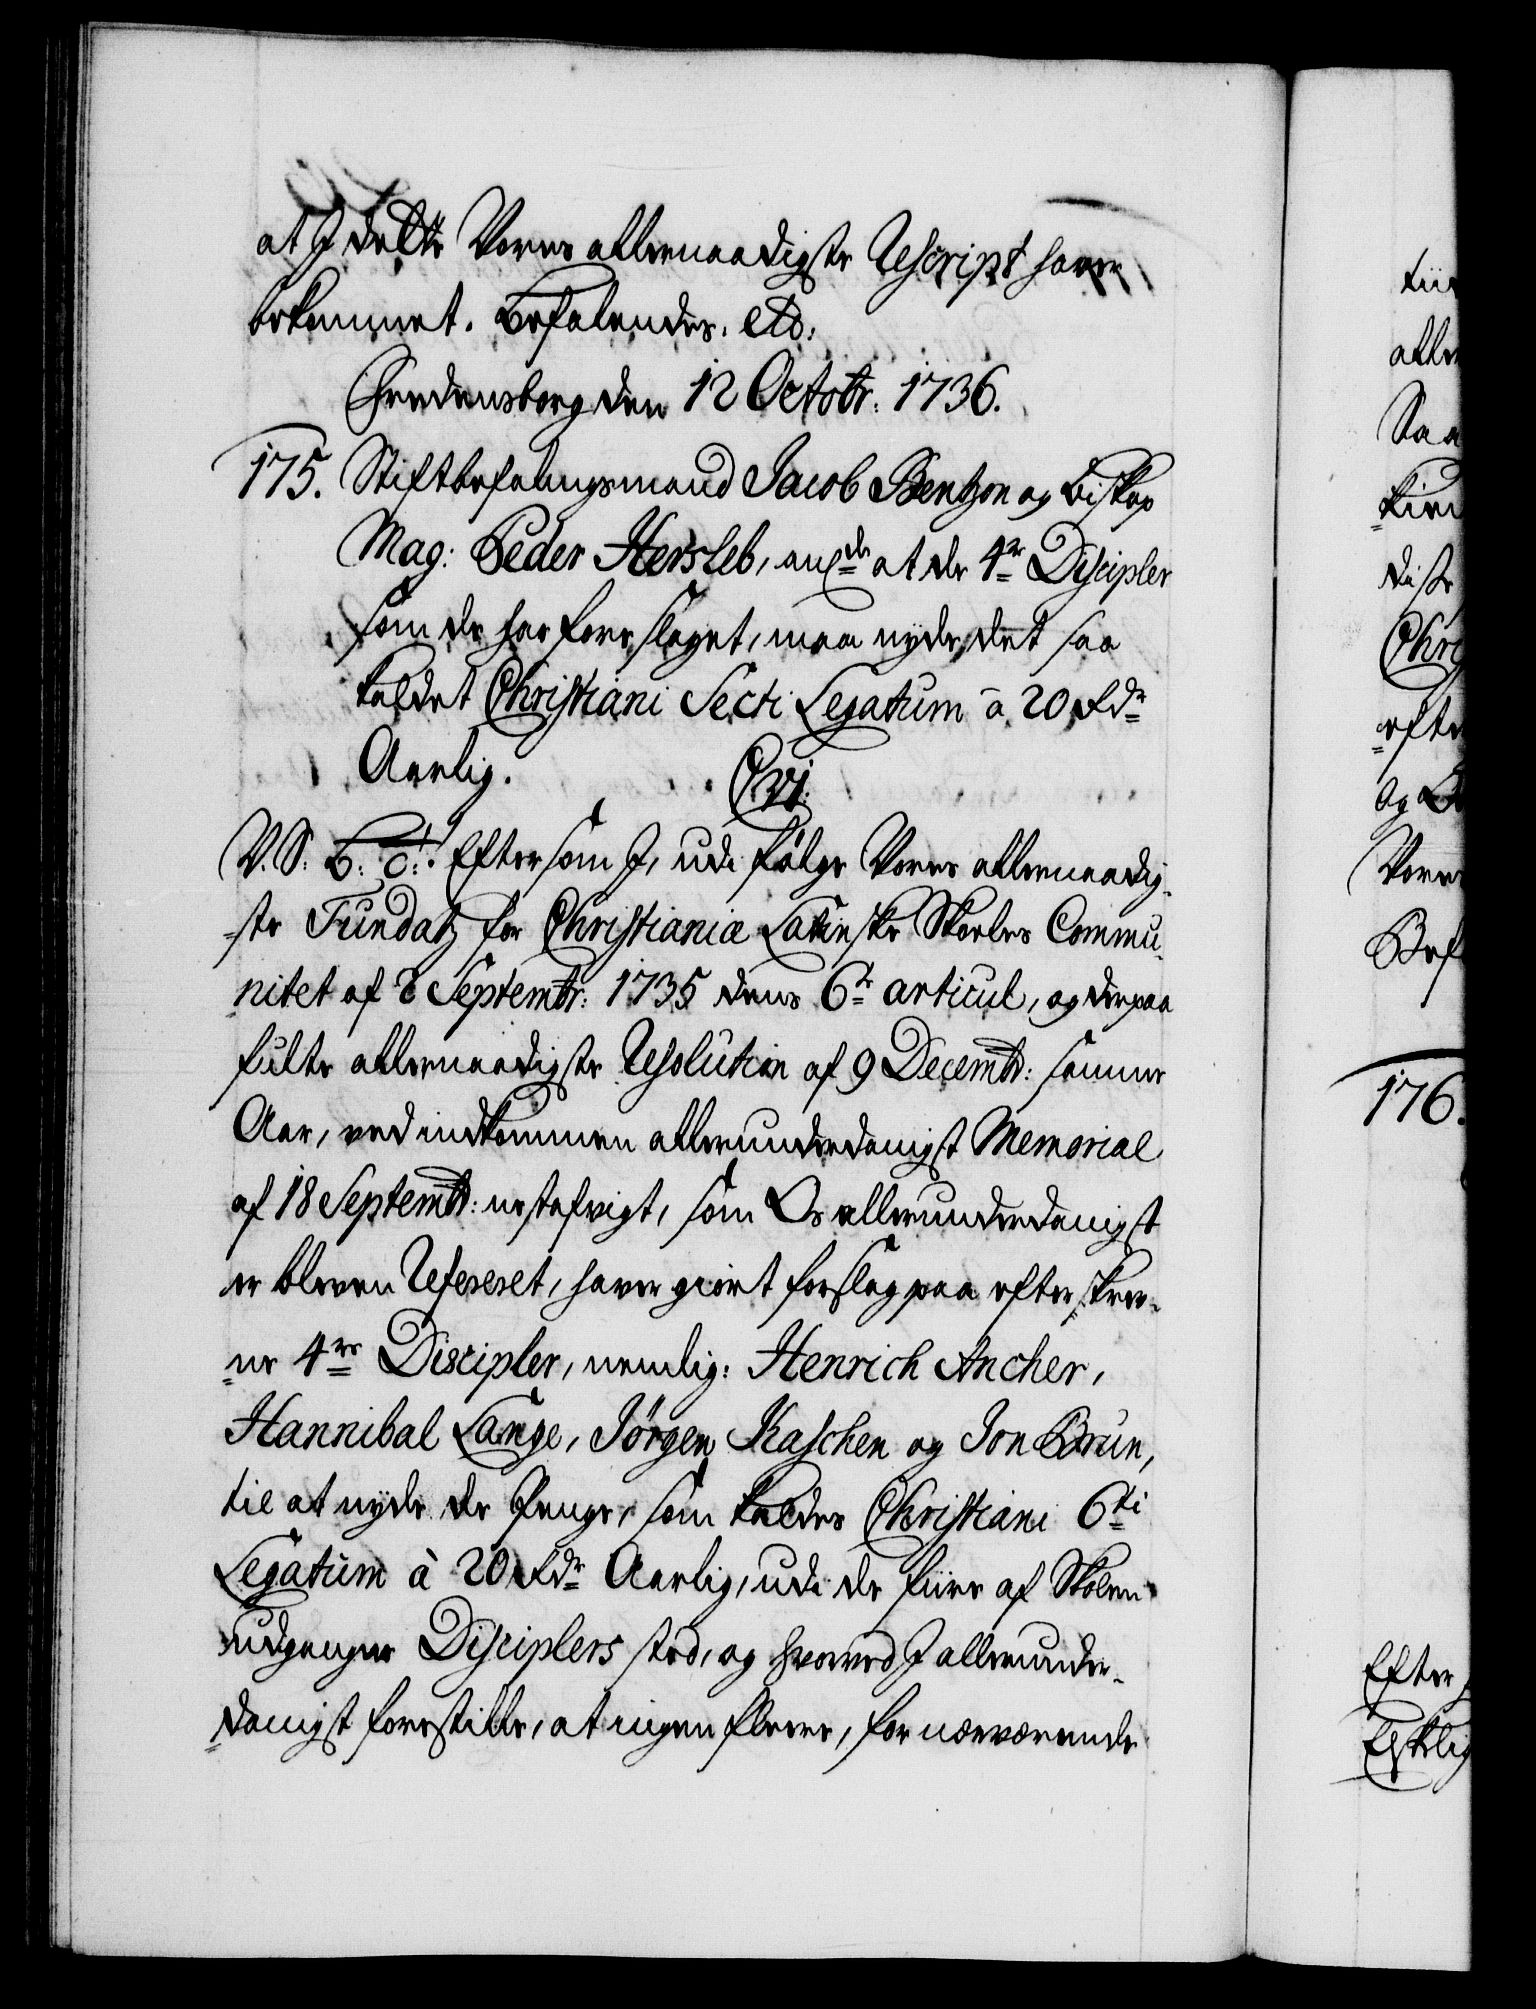 at I dette Vores allernaadigste Rescript haver
bekommet. Befalendes. etc:
Fredensborg den 12 Octobr: 1736.
175. Stiftbefalingsmand Jacob Bentzon og Biskop
Mag: Peder Hersleb, an&de at de 4re Discipler
som de har foreslaget, maa nyde det saa
kaldet Christiani Sexti Legatum â 20 Rdr
Aarlig.
C VI.
V. S: B: T: Eftersom I, udi følge Vores allernaadig-
-ste Fundatz for Christiania Latinske Skoeles Commu-
nitet af 8 Septembr: 1735 dens 6te articul, og derpaa
fulte allernaadigste Resolution af 9 Decembr: samme
Aar, ved indkommen allerunderdanigst Memorial
af 18 Septembr: nestafvigt, som Os allerunderdanigst
er bleven Refereret, haver giort forslag paa efterskrev-
ne 4re Discipler, nemlig: Henrich Ancher,
Hannibal Lange, Jørgen Kaschen og Jon Brun,
til at nyde de Penge, som kaldes Christiani 6ti
Legatum à 20 Rdr Aarlig, udi de fiire af Skolen
udgangne Disciplers sted, og hvorved I allerunder-
-danigst forestille, at ingen fleere, for nærværende
tiid
aller
Saa
kied
disse
Chri
efter
og
Vores
Bef
176.
Efter
Elskelig